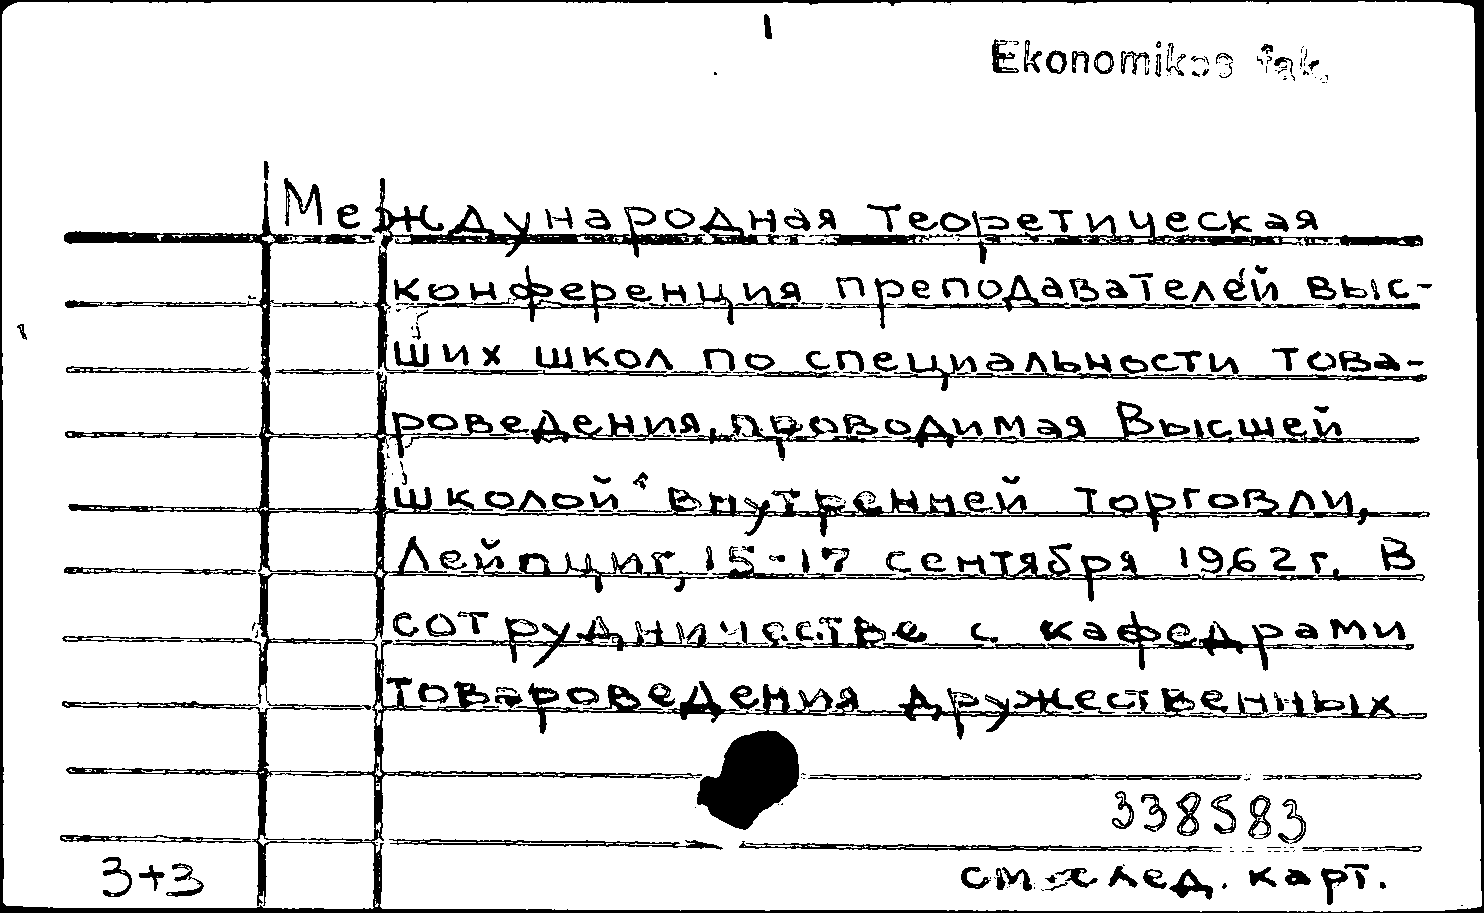 Ekonomikos fak.
Международная теоретическая
конференция преподавателей выс-
ших школ по специальности това-
роведения, проводимая Высшей
школой внутренней торговли,
Лейпциг, 15-17 сентября 1962 г. В
сотрудничестве с кафедрами
товароведения дружественных
338583
3+3
см. след. карт.